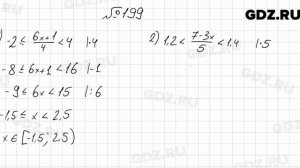 №199
GDZ.RU
1) -2 ≤ (6x+1)/4 < 4 |·4
-8 ≤ 6x+1 < 16 |-1
-9 ≤ 6x < 15 |:6
-1,5 ≤ x < 2,5
x ∈ [-1,5; 2,5)
2) 1,2 < (7-3x)/5 < 1,4 |·5
GDZ.RU